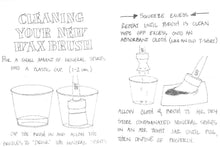 CLEANING
YOUR NEW
WAX BRUSH
POUR A SMALL AMOUNT OF MINERAL SPIRITS
INTO A PLASTIC CUP. (1-2 cm)
DIP THE BRUSH IN AND ALLOW THE
BRISTLES TO "DRINK" THE MINERAL SPIRITS
→ SQUEEZE EXCESS
REPEAT UNTIL BRUSH IS CLEAN
WIPE OFF EXCESS ONTO AN
ABSORBENT CLOTH
ALLOW CLOTH & BRUSH TO AIR DRY
CONTAMINATED MINERAL SPIRITS
IN AN AIR TIGHT JAR UNTIL FULL,
THEN DISPOSE OF PROPERLY.